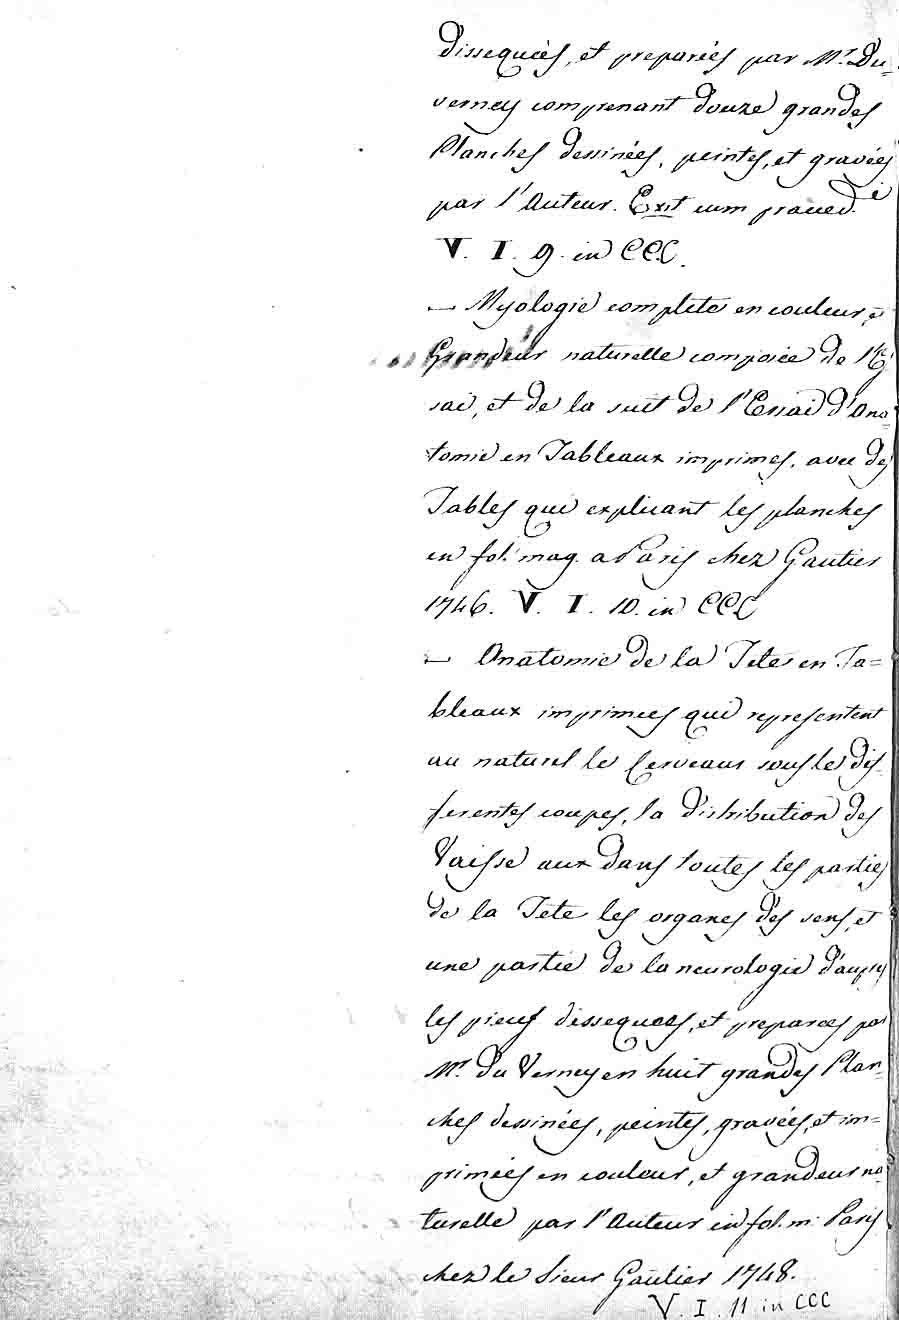 dissequées, et preparées par Mr. Du-
verney comprenant douze grandes
Planches dessinées, peintes, et gravées
par l'Auteur. Exit cum praeced.
V. I. 9. in CCC.
— Myologie complete en couleur, è
Grandeur naturelle composée de l'Es
sai, et de la suit de l'Essai d'Ana=
tomie en Tableaux imprimes, avec des
Tables qui expliuant les planches
en fol. mag. a Paris chez Gautier
1746. V. I. 10. in CCC
— Anatomie de la Tete en Ta=
bleaux imprimees qui representent
au naturel le Cerveaux sous le dif-
ferentes coupes, la distribution des
Vaisse aux dans toutes les parties
de la Tete les organes des sens, et
une partie de la neurologie d'aupres
les pieces dissequees, et preparées par
Mr. du Verney en huit grandes Plan=
ches dessinées, peintes, gravées, et im=
primées en couleur, et grandeur na
turelle par l'Auteur in fol. m: Paris
chez le Sieur Gautier 1748.
V. I. 11 in CCC